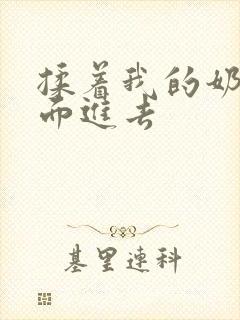 揉着我的奶
而进去
基里连科